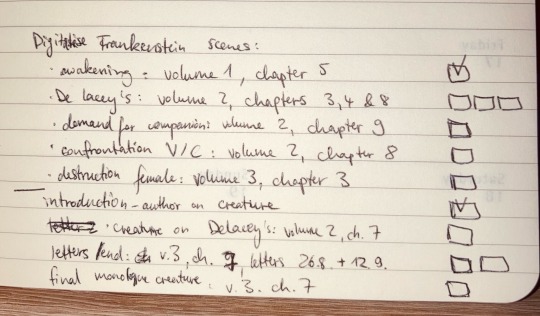 Digitise Frankenstein scenes:
· awakening: volume 1, chapter 5
· De Lacey's: volume 2, chapters 3, 4 & 8
· demand for companion: vlume 2, chapter 9
· confrontation V/C: volume 2, chapter 8
· destruction female: volume 3, chapter 3
introduction - author on creature
· creature on Delacey's: volume 2, ch. 7
letters / end: v.3, ch. 7, letters 26.8. + 12.9.
final monologue creature: v.3. ch. 7